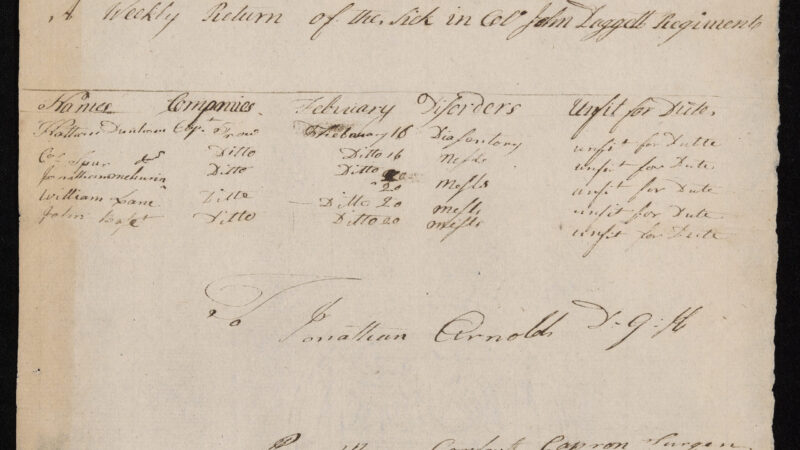 A Weekly Return of the Sick in Colo John Daggett Regiment
Names Companies February Disorders Unfit for Dute
Dunham Capt Trow Februay 16 Diasentory unfit for Dutte
Ditto Ditto 16 Mesls unfit for Dute
Jonathan Ditto Ditto 20 Mesls unfit for Dute
William Lane Ditto Ditto 20 mesls unfit for Dute
John Ditto Ditto 20 mesls unfit for Dute
To Jonathan Arnolds D. G. H
Capron Surgen